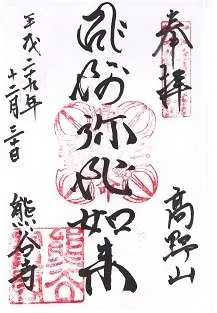 奉拝
高野山
阿弥陀如来
平成二十九年
十二月三十日
熊谷寺